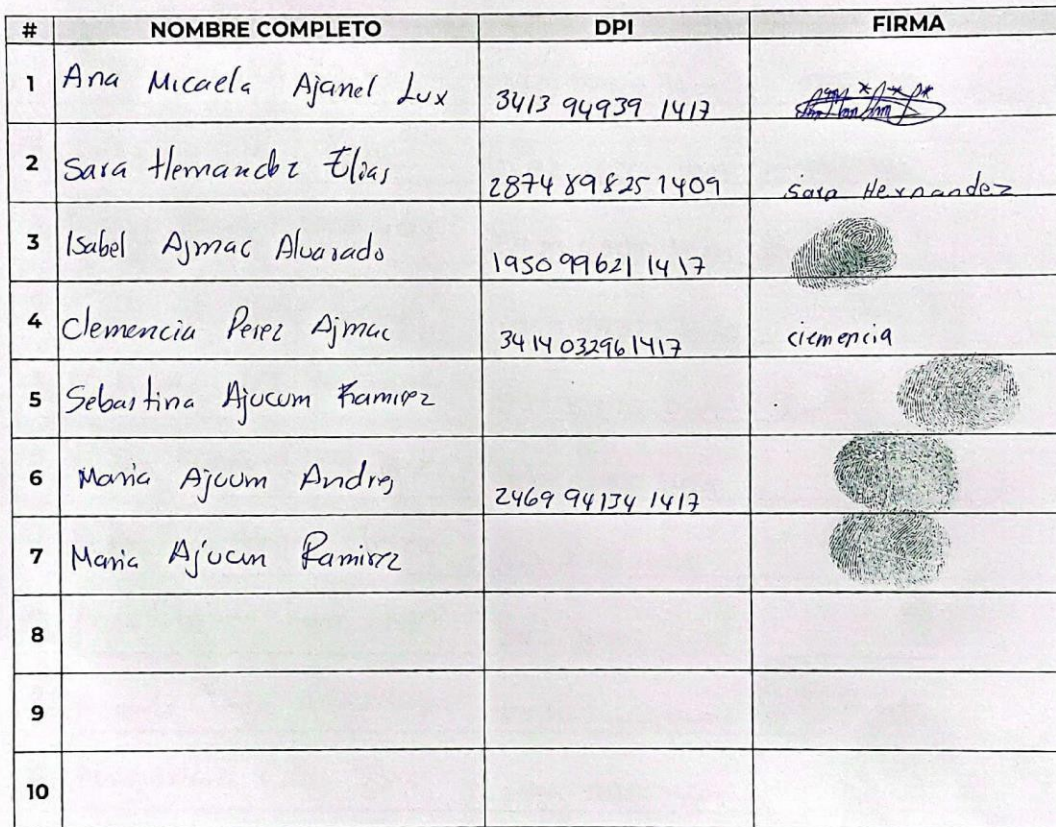 # NOMBRE COMPLETO DPI FIRMA
1 Ana Micaela Ajanel Lux 3413 94939 1417
2 Sara Hernandez Elias 2874 89825 1409 sara Hernandez
3 Isabel Ajmac Alvarado 1950 99621 1417
4 Clemencia Perez Ajmac 3414 03296 1417 clemencia
5 Sebastina Ajucum Ramirez
6 Maria Ajucum Andres 2469 94134 1417
7 Maria Ajucun Ramirez
8
9
10